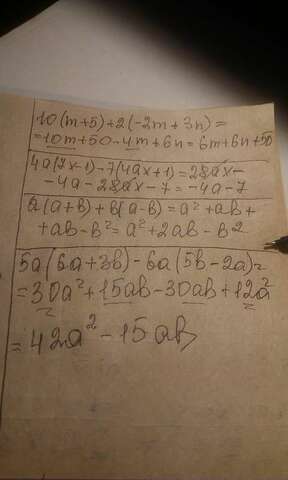 10(m+5)+2(-2m+3n)=
=10m+50-4m+6n=6m+6n+50
4a(7x-1)-7(4ax+1)=28ax-
-4a-28ax-7=-4a-7
a(a+b)+b(a-b)=a²+ab+
+ab-b²=a²+2ab-b²
5a(6a+3b)-6a(5b-2a)=
=30a²+15ab-30ab+12a²
=42a²-15ab